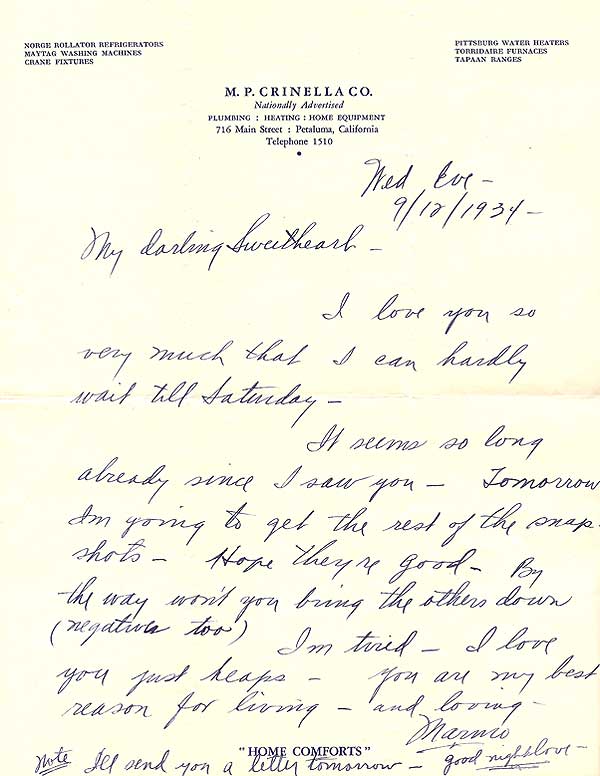 NORGE ROLLATOR REFRIGERATORS
MAYTAG WASHING MACHINES
CRANE FIXTURES
PITTSBURG WATER HEATERS
TORRIDAIRE FURNACES
TAPAAN RANGES
M. P. CRINELLA CO.
Nationally Advertised
PLUMBING : HEATING : HOME EQUIPMENT
716 Main Street : Petaluma, California
Telephone 1510
Wed Eve —
9/12/1934 —
My darling Sweetheart —
I love you so
very much that I can hardly
wait till Saturday —
It seems so long
already since I saw you — Tomorrow
Im going to get the rest of the snap-
shots — Hope they're good — By
the way won't you bring the others down
(negatives too) Im tired — I love
you just heaps — you are my best
reason for living — and loving —
"HOME COMFORTS"
Note I'll send you a letter tomorrow — good night love —